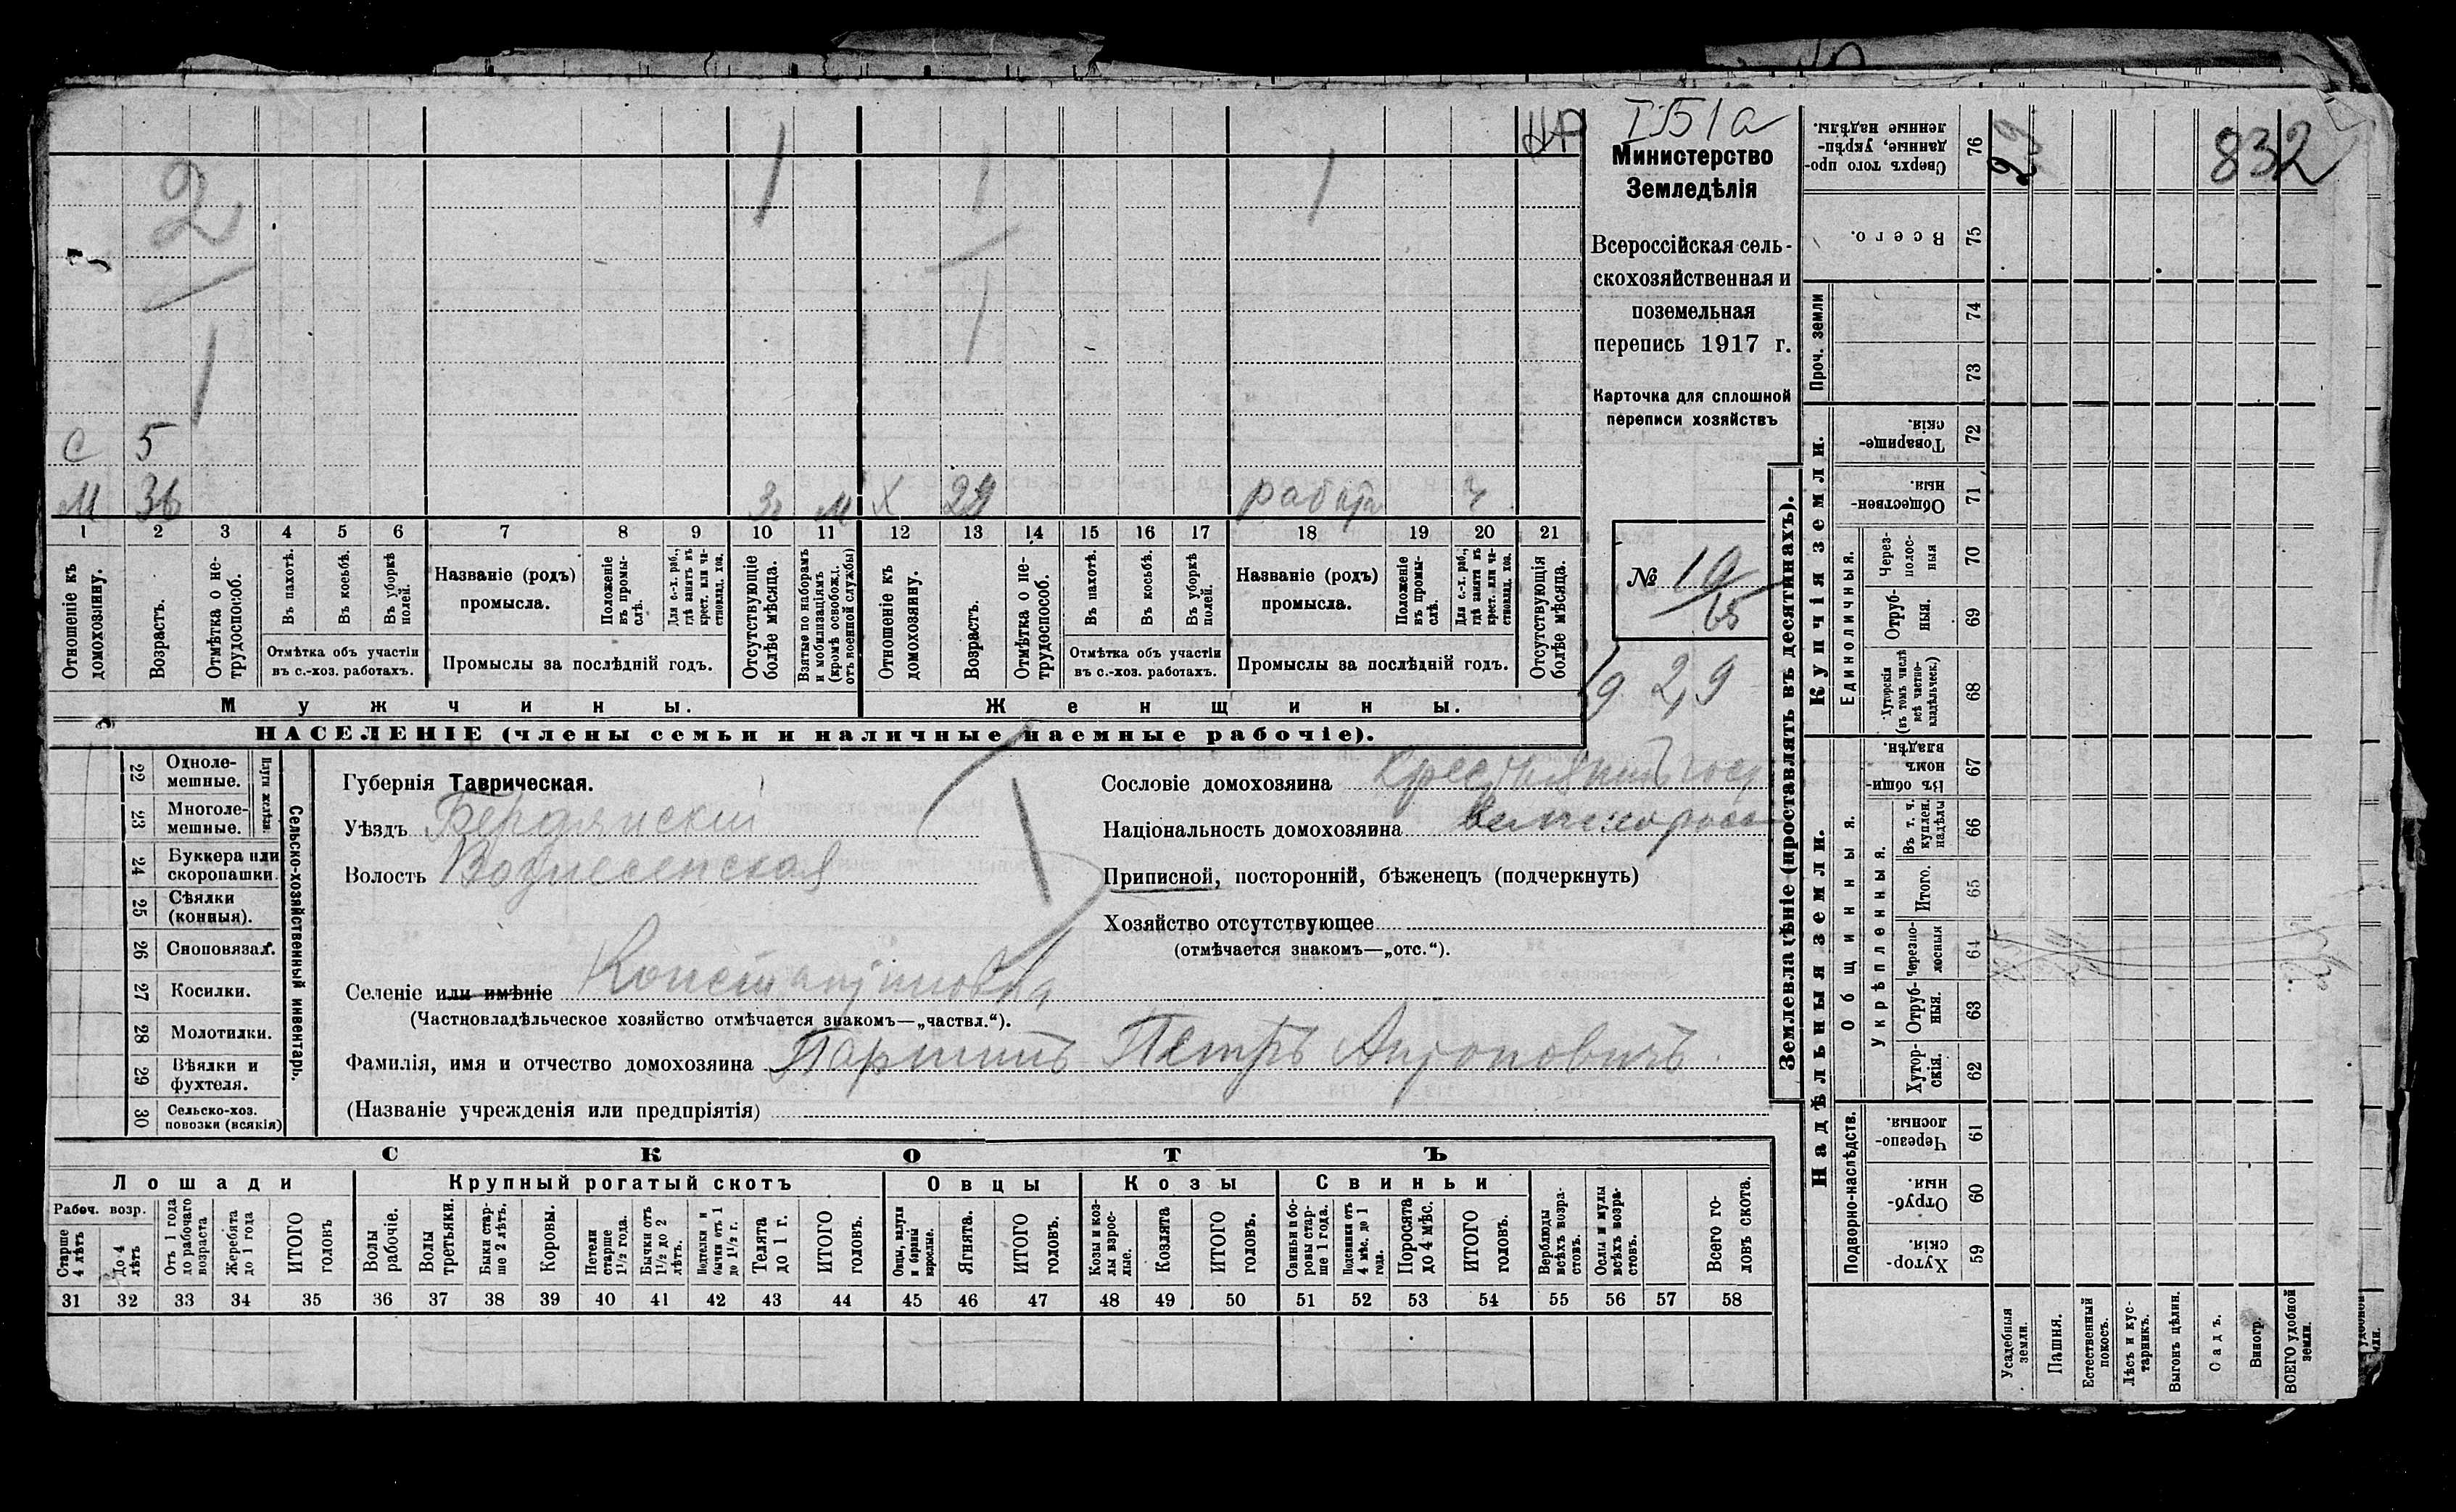 832
29
1
Министерство
Земледѣлія
Всероссійская сель-
скохозяйственная и
поземельная
перепись 1917 г.
Карточка для сплошной
переписи хозяйствъ
№ 19
65
9 29
2
1
1
1
1
1
С 5
М 36 М Х 29
1 2 3 4 5 6 7 8 9 10 11 12 13 14 15 16 17 18 19 20 21
Отношеніе къ домохозяину.
Возрастъ.
Отмѣтка о не-трудоспособ.
Въ пахотѣ.
Въ косьбѣ.
Въ уборкѣ полей.
Отмѣтка объ участіи
въ с.-хоз. работахъ.
Названіе (родъ)
промысла.
Положеніе въ промы-слѣ.
Для с.-х. раб., гдѣ занятъ въ крест. или ча-стновлад. хоз.
Промыслы за послѣдній годъ.
Отсутствующіе болѣе мѣсяца.
Взятые по наборамъ и мобилизаціямъ (кромѣ освобожд. отъ военной службы)
Отношеніе къ домохозяину.
Возрастъ.
Отмѣтка о не-трудоспособ.
Въ пахотѣ.
Въ косьбѣ.
Въ уборкѣ полей.
Отмѣтка объ участіи
въ с.-хоз. работахъ.
Названіе (родъ)
промысла.
Положеніе въ промы-слѣ.
Для с.-х. раб., гдѣ занята въ крест. или ча-стновлад. хоз.
Промыслы за послѣдній годъ.
Отсутствующія болѣе мѣсяца.
Мужчины.
Женщины.
НАСЕЛЕНІЕ (члены семьи и наличные наемные рабочіе).
22 Одноле-мешные.
23 Многоле-мешные.
Плуги желѣзн.
24 Буккера или скоропашки.
25 Сѣялки (конныя).
26 Сноповязал.
27 Косилки.
28 Молотилки.
29 Вѣялки и фухтеля.
30 Сельско-хоз. повозки (всякія)
Сельско-хозяйственный инвентарь.
Губернія Таврическая.
Уѣздъ Бердянскій
Волость Вознесенская
Селеніе или имѣніе Константиновка
(Частновладѣльческое хозяйство отмѣчается знакомъ—„частвл.“).
Фамилія, имя и отчество домохозяина Паршинъ Петръ Антоновичъ
(Названіе учрежденія или предпріятія)
Сословіе домохозяина Крестьянинъ
Національность домохозяина великоросс
Приписной, посторонній, бѣженецъ (подчеркнуть)
Хозяйство отсутствующее
(отмѣчается знакомъ—„отс.“).
СКОТЪ
Лошади
Крупный рогатый скотъ
Овцы
Козы
Свиньи
Рабоч. возр.
Старше 4 лѣтъ
До 4 лѣтъ
Отъ 1 года до рабочаго возраста
Жеребята до 1 года
ИТОГО головъ
Волы рабочіе.
Волы третьяки.
Быки стар-ше 2 лѣтъ.
Коровы.
Нетели старше 1½ года.
Бычки отъ 1½ до 2 лѣтъ.
Подтелки и бычки отъ 1 до 1½ г.
Телята до 1 г.
ИТОГО головъ.
Овцы, валухи и бараны взрослые.
Ягнята.
ИТОГО головъ.
Козы и коз-лы взрос-лые.
Козлята
ИТОГО головъ.
Свиньи и бо-ровы стар-ше 1 года.
Подсвинки отъ 4 мѣс. до 1 года.
Поросята до 4 мѣс.
ИТОГО головъ.
Верблюды всѣхъ возра-стовъ.
Ослы и мулы всѣхъ возра-стовъ.
Всего го-ловъ скота.
31 32 33 34 35 36 37 38 39 40 41 42 43 44 45 46 47 48 49 50 51 52 53 54 55 56 57 58
Землевладѣніе (проставлять въ десятинахъ).
Купчія земли.
Надѣльныя земли.
Сверхъ того про-данные, укрѣп-ленные надѣлы. 76
Всего. 75
Проч. земли
74
73
Товарище-скія. 72
Обществен-ныя. 71
Единоличныя.
Через-полос-ныя 70
Отруб-ныя. 69
Хуторскія (въ томъ числѣ всѣ частно-владѣльческ.) 68
Общинныя.
Въ общи-номъ владѣн. 67
Укрѣпленныя.
Въ т. ч. куплен. надѣлы 66
Итого. 65
Черезпо-лосныя 64
Отруб-ныя. 63
Хутор-скія. 62
Подворно-наслѣдств.
Черезпо-лосныя 61
Отруб-ныя. 60
Хутор-скія. 59
Усадебныя земли.
Пашня.
Естественный покосъ.
Лѣсъ и кус-тарникъ.
Выгонъ цѣлин.
Садъ.
Виногр.
ВСЕГО удобной земли.